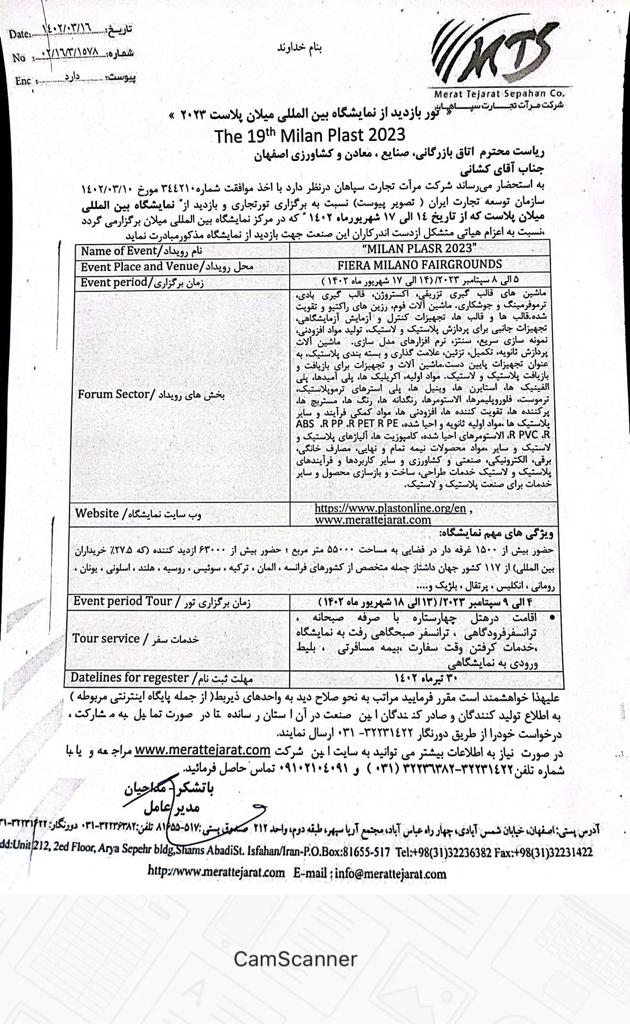 تاریخ: ۱۴۰۲/۰۳/۱۶ Date:
شماره: ۰۲/۱۶/۳/۱۵۷۸ No
پیوست: دارد Enc
بنام خداوند
MTS
Merat Tejarat Sepahan Co.
شرکت مرآت تجارت سپاهان
« تور بازدید از نمایشگاه بین المللی میلان پلاست ۲۰۲۳ »
The 19th Milan Plast 2023
ریاست محترم اتاق بازرگانی، صنایع ، معادن و کشاورزی اصفهان
جناب آقای کشانی
به استحضار می‌رساند شرکت مرآت تجارت سپاهان درنظر دارد با اخذ موافقت شماره ۳۴۴۲۱۰ مورخ ۱۴۰۲/۰۳/۱۰
سازمان توسعه تجارت ایران ( تصویر پیوست) نسبت به برگزاری تورتجاری و بازدید از" نمایشگاه بین المللی
میلان پلاست که از تاریخ ۱۴ الی ۱۷ شهریورماه ۱۴۰۲ " که در مرکز نمایشگاه بین المللی میلان برگزارمی گردد
،نسبت به اعزام هیاتی متشکل ازدست اندرکاران این صنعت جهت بازدید از نمایشگاه مذکورمبادرت نماید
Name of Event/نام رویداد "MILAN PLASR 2023"
Event Place and Venue/محل رویداد FIERA MILANO FAIRGROUNDS
Event period/زمان برگزاری ۵ الی ۸ سپتامبر ۲۰۲۳/(۱۴ الی ۱۷ شهریور ماه ۱۴۰۲ )
Forum Sector/بخش های رویداد
ماشین های قالب گیری تزریقی، اکستروژن، قالب گیری بادی،
ترموفرمینگ و جوشکاری. ماشین آلات فوم، رزین های راکتیو و تقویت
شده.قالب ها و قالب ها، تجهیزات کنترل و آزمایش آزمایشگاهی،
تجهیزات جانبی برای پردازش پلاستیک و لاستیک، تولید مواد افزودنی،
نمونه سازی سریع، سنتز، نرم افزارهای مدل سازی. ماشین آلات
پردازش ثانویه، تکمیل، تزئین، علامت گذاری و بسته بندی پلاستیک، به
عنوان تجهیزات پایین دست.ماشین آلات و تجهیزات برای بازیافت و
بازیافت پلاستیک و لاستیک. مواد اولیه، اکریلیک ها، پلی آمیدها، پلی
الفینیک ها، استایرن ها، وینیل ها، پلی استرهای ترموپلاستیک،
ترموست، فلوروپلیمرها، الاستومرها، رنگدانه ها، رنگ ها، مستربچ ها،
پرکننده ها، تقویت کننده ها، افزودنی ها، مواد کمکی فرآیند و سایر
پلاستیک ها .مواد اولیه ثانویه و احیا شده، ABS ،R PP ،R PET R PE
،R PVC ،R الاستومرهای احیا شده، کامپوزیت ها، آلیاژهای پلاستیک و
لاستیک و سایر .مواد محصولات نیمه تمام و نهایی، مصارف خانگی،
برقی، الکترونیکی، صنعتی و کشاورزی و سایر کاربردها و فرآیندهای
پلاستیک و لاستیک خدمات طراحی، ساخت و بازسازی محصول و سایر
خدمات برای صنعت پلاستیک و لاستیک.
Website /وب سایت نمایشگاه https://www.plastonline.org/en ,
www.merattejarat.com
ویژگی های مهم نمایشگاه:
حضور بیش از ۱۵۰۰ غرفه دار در فضایی به مساحت ۵۵۰۰۰ متر مربع ؛ حضور بیش از ۶۳۰۰۰ ازدید کننده (که ۲۷.۵٪ خریداران
بین المللی) از ۱۱۷ کشور جهان داشتاز جمله متخصص از کشورهای فرانسه ، المان ، ترکیه ، سوئیس ، روسیه ، هلند ، اسلونی ، یونان ،
رومانی ، انگلیس ، پرتقال ، بلژیک و....
Event period Tour / زمان برگزاری تور ۴ الی ۹ سپتامبر ۲۰۲۳/(۱۳ الی ۱۸ شهریور ماه ۱۴۰۲ )
Tour service / خدمات سفر
• اقامت درهتل چهارستاره با صرفه صبحانه ،
ترانسفرفرودگاهی ، ترانسفر صبحگاهی رفت به نمایشگاه
،خدمات گرفتن وقت سفارت ،بیمه مسافرتی ، بلیط
ورودی به نمایشگاهی
Datelines for regester/مهلت ثبت نام ۳۰ تیرماه ۱۴۰۲
علیهذا خواهشمند است مقرر فرمایید مراتب به نحو صلاح دید به واحدهای ذیربط( از جمله پایگاه اینترنتی مربوطه )
به اطلاع تولید کنندگان و صادر کنندگان این صنعت در آن استان رسانده تا در صورت تمایل به مشارکت ،
درخواست خودرا از طریق دورنگار ۳۲۲۳۱۴۲۲- ۰۳۱ ارسال نمایند.
در صورت نیاز به اطلاعات بیشتر می توانید به سایت این شرکت www.merattejarat.com مراجعه و یا با
شماره تلفن ۳۲۲۳۱۴۲۲-۳۲۲۳۶۳۸۲ (۰۳۱) و ۰۹۱۰۲۱۰۴۰۹۱ تماس حاصل فرمائید.
باتشکر- مداحیان
مدیر عامل
آدرس پستی: اصفهان، خیابان شمس آبادی، چهار راه عباس آباد، مجتمع آریا سپهر، طبقه دوم، واحد ۲۱۲ صندوق پستی: ۵۱۷-۸۱۶۵۵ تلفن: ۳۲۲۳۶۳۸۲-۰۳۱ دورنگار: ۳۲۲۳۱۴۲۲-۰۳۱
dd:Unit 212, 2ed Floor, Arya Sepehr bldg,Shams AbadiSt. Isfahan/Iran-P.O.Box:81655-517 Tel:+98(31)32236382 Fax:+98(31)32231422
http://www.merattejarat.com E-mail : info@merattejarat.com
CamScanner